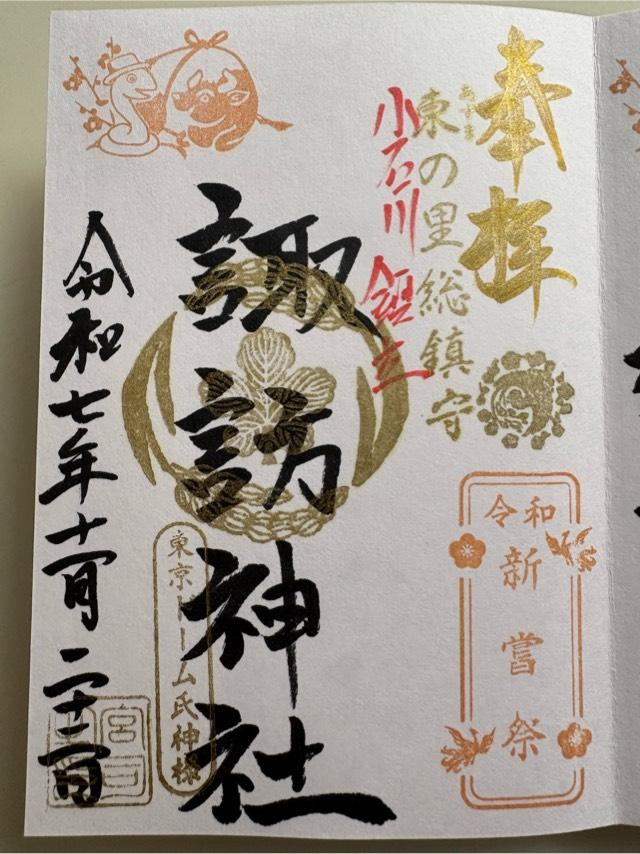 奉拝
あずま
東の里総鎮守
小石川
令和
新嘗祭
諏訪神社
東京ドーム氏神様
令和七年十一月二十二日